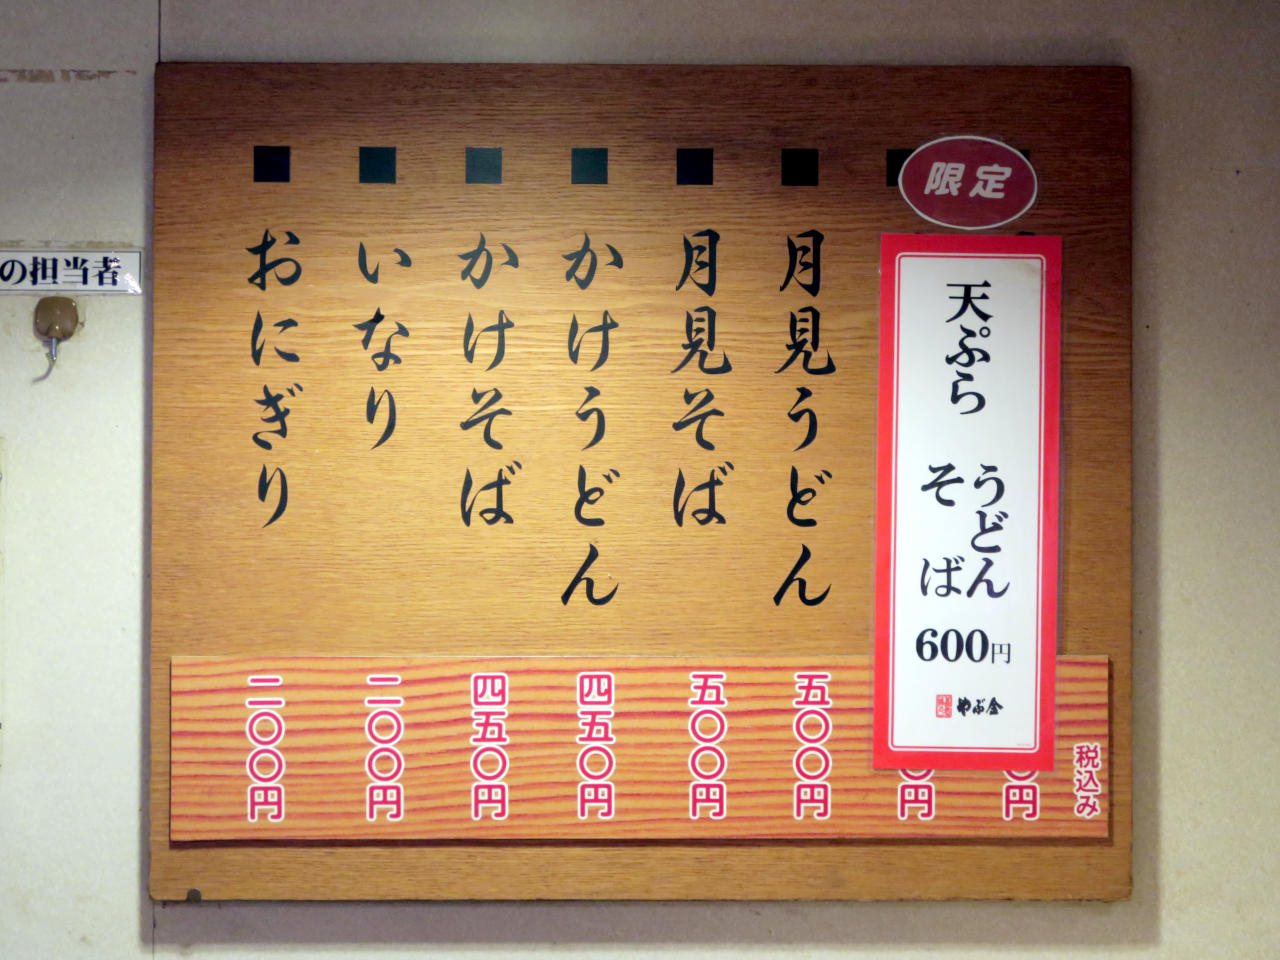 限定
天ぷら
うどん
そば
600円
やぶ金
月見うどん
月見そば
かけうどん
かけそば
いなり
おにぎり
税込み
〇円
〇円
五〇〇円
五〇〇円
四五〇円
四五〇円
二〇〇円
二〇〇円
の担当者